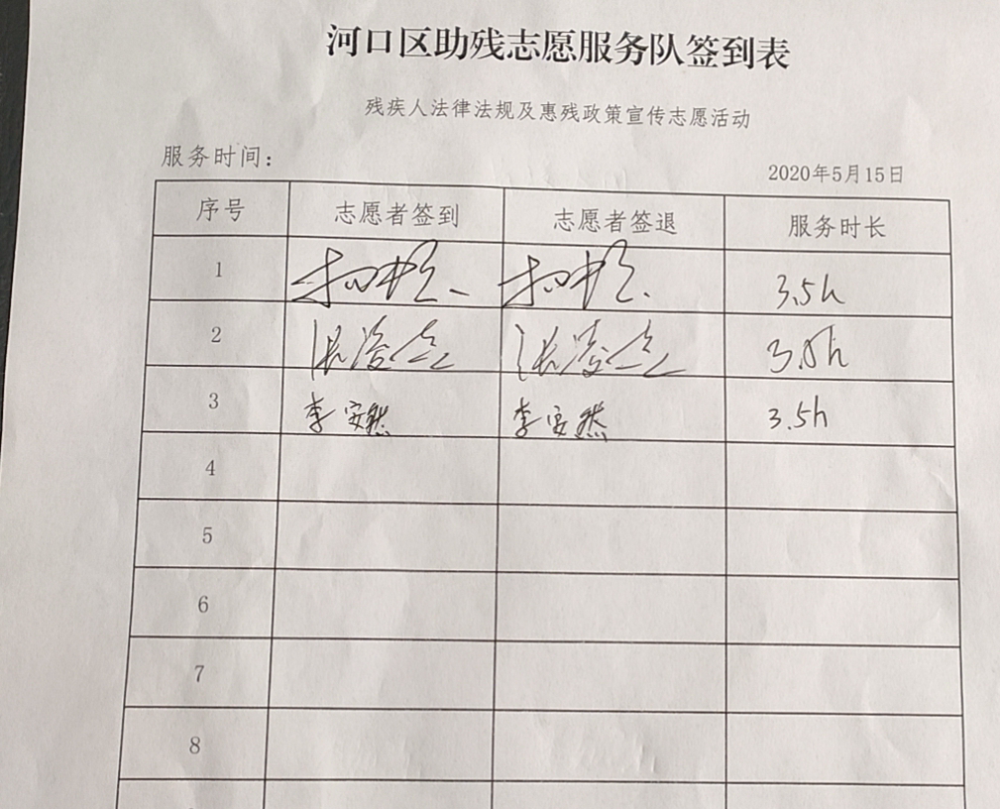 河口区助残志愿服务队签到表
残疾人法律法规及惠残政策宣传志愿活动
服务时间：
2020年5月15日
序号 志愿者签到 志愿者签退 服务时长
1 3.5h
2 3.5h
3 李安然 李安然 3.5h
4
5
6
7
8